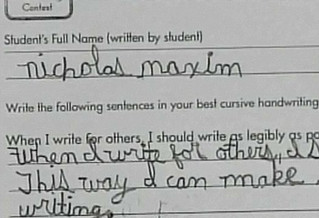 Contest
Student's Full Name (written by student)
nicholas maxim
Write the following sentences in your best cursive handwriting
When I write for others, I should write as legibly as
When I write for others, I
This way I can make
writing